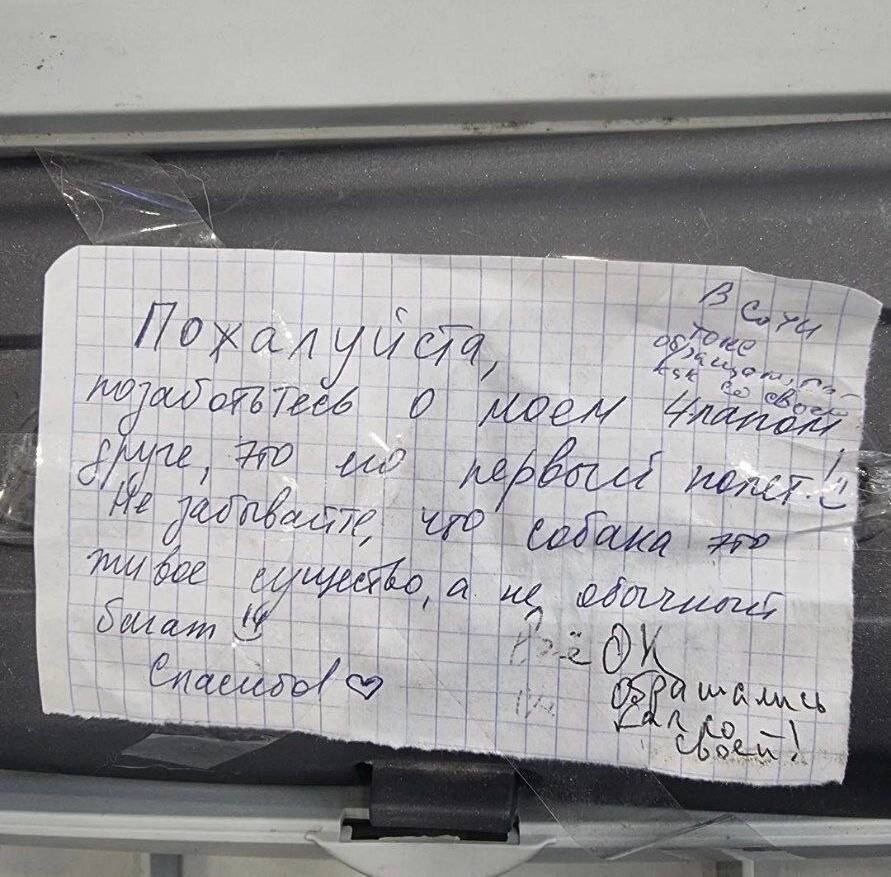 Пожалуйста,
позаботьтесь о моем 4лапом
друге, это его первый полет!
Не забывайте, что собака это
живое существо, а не обычный
багаж
Спасибо! ♡
В Сочи
тоже
как со своей
Всё ОК
обращались
как со
своей!